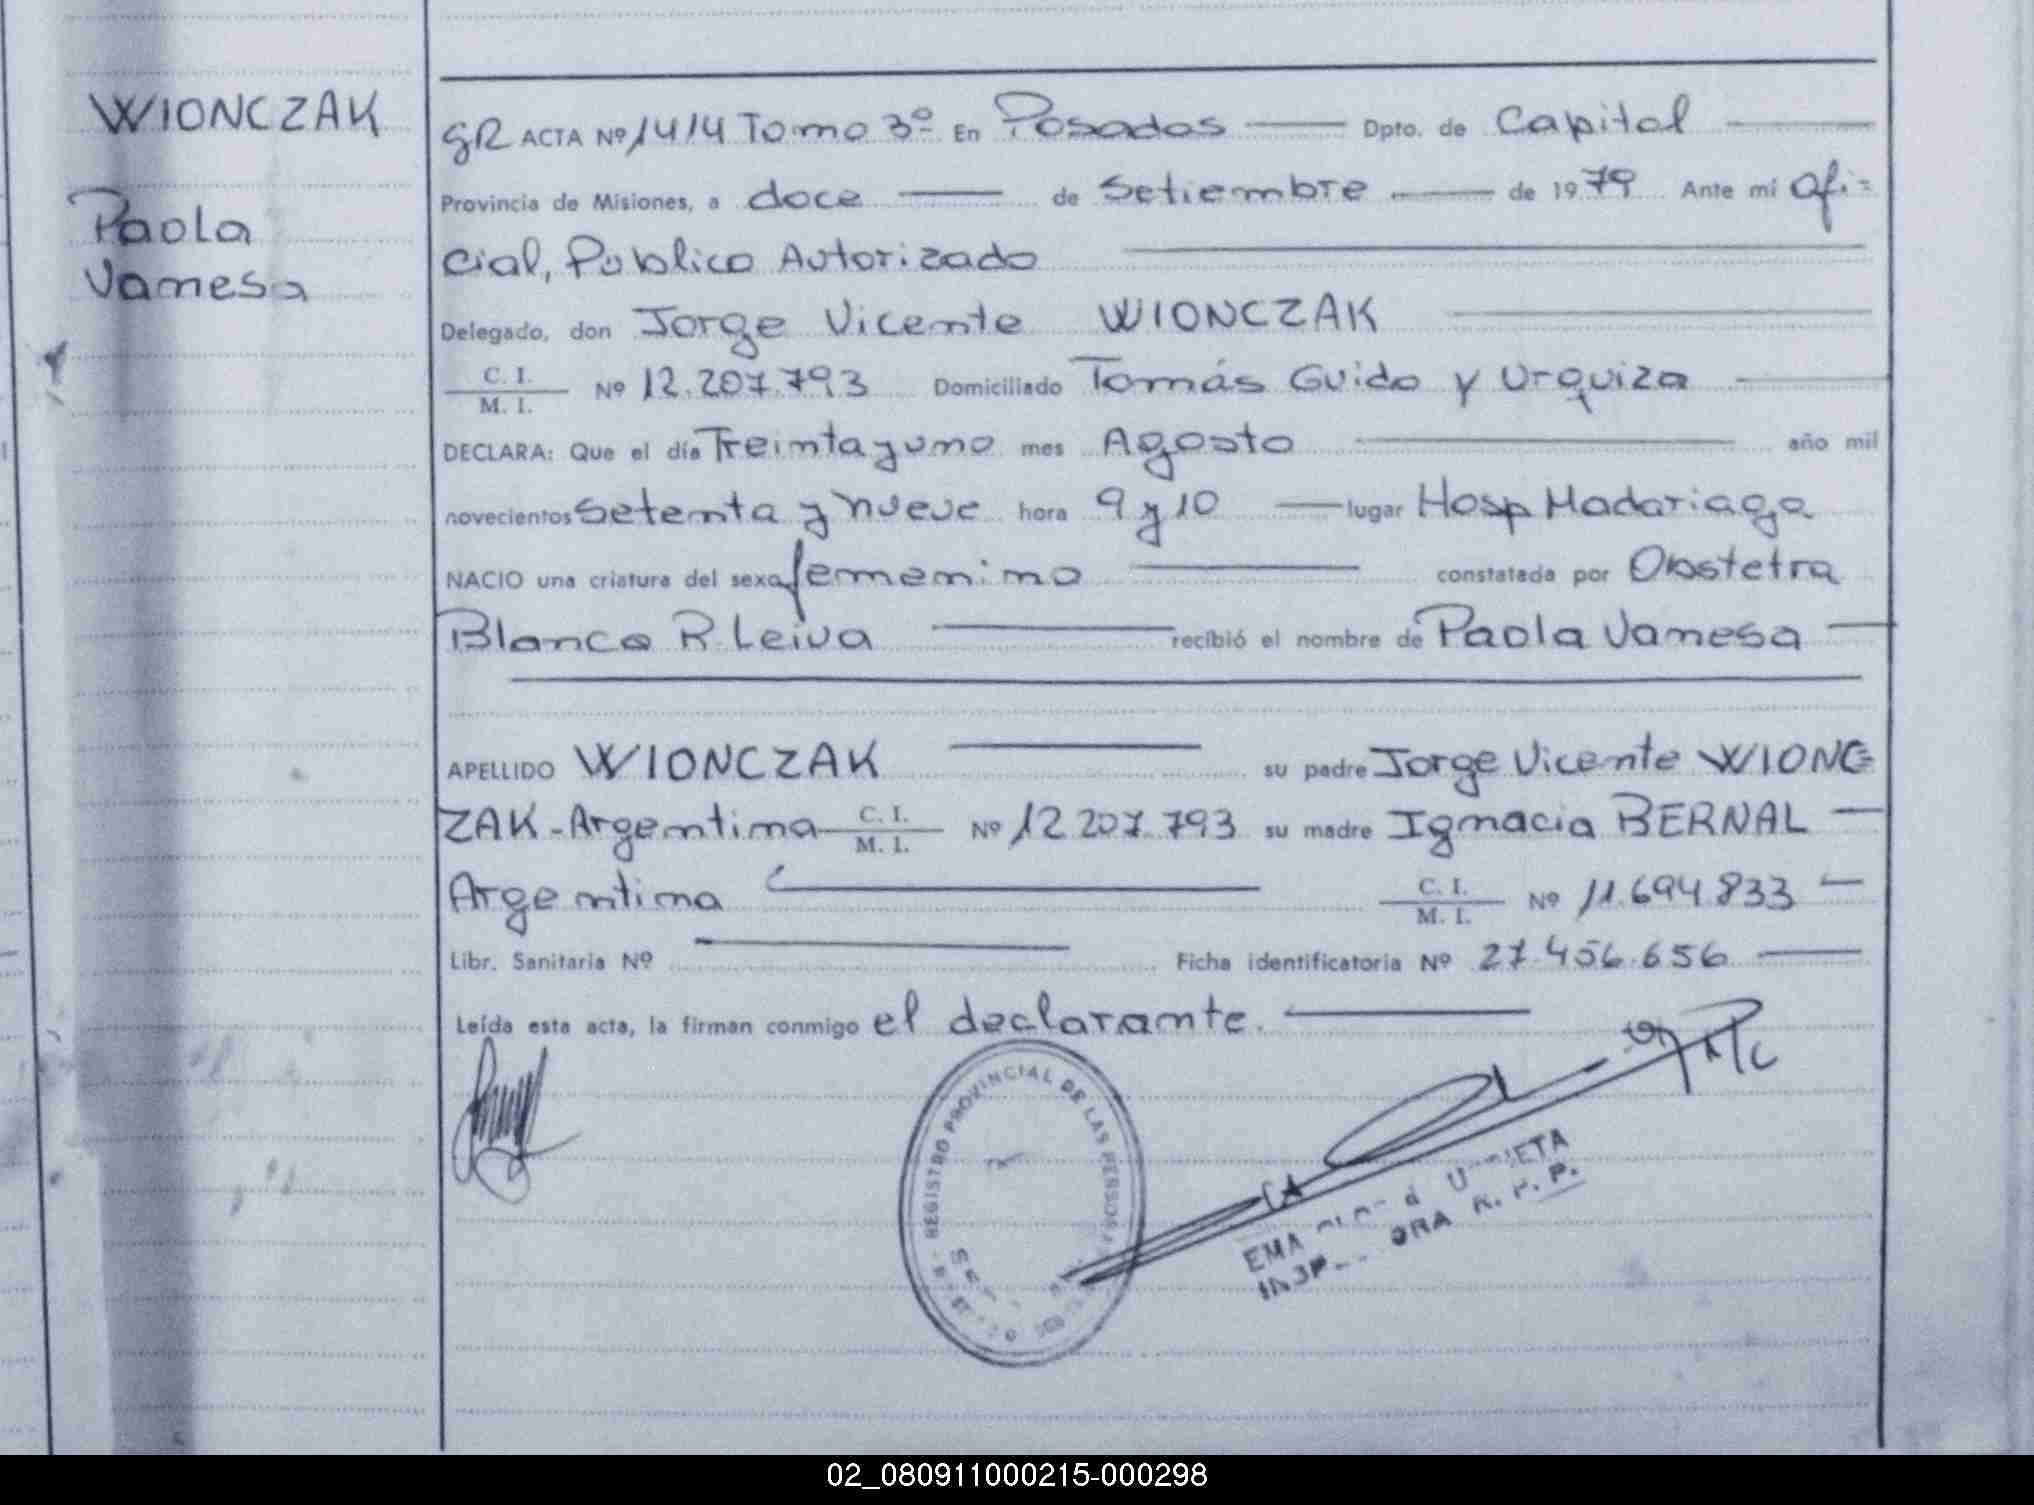 WIONCZAK
Paola
Vanesa
GR ACTA Nº 1414 Tomo 3º En Posadas Dpto. de Capital
Provincia de Misiones, a doce de Setiembre de 1979 Ante mi Ofi=
cial, Público Autorizado
Delegado, don Jorge Vicente WIONCZAK
C. I.
M. I. Nº 12.207.793 Domiciliado Tomás Guido y Urquiza
DECLARA: Que el día Treinta y uno mes Agosto año mil
novecientos Setenta y nueve hora 9 y 10 lugar Hosp Madariaga
NACIO una criatura del sexo femenino constatada por Obstetra
Blanca R. Leiva recibió el nombre de Paola Vanesa
APELLIDO WIONCZAK su padre Jorge Vicente WIONC=
ZAK-Argentina C. I. M. I. Nº 12 207.793 su madre Ignacia BERNAL
Argentina C. I. M. I. Nº 11.694.833
Libr. Sanitaria Nº Ficha identificatoria Nº 27.456.656
Leída esta acta, la firman conmigo el declarante.
REGISTRO PROVINCIAL DE LAS PERSONAS
02_080911000215-000298